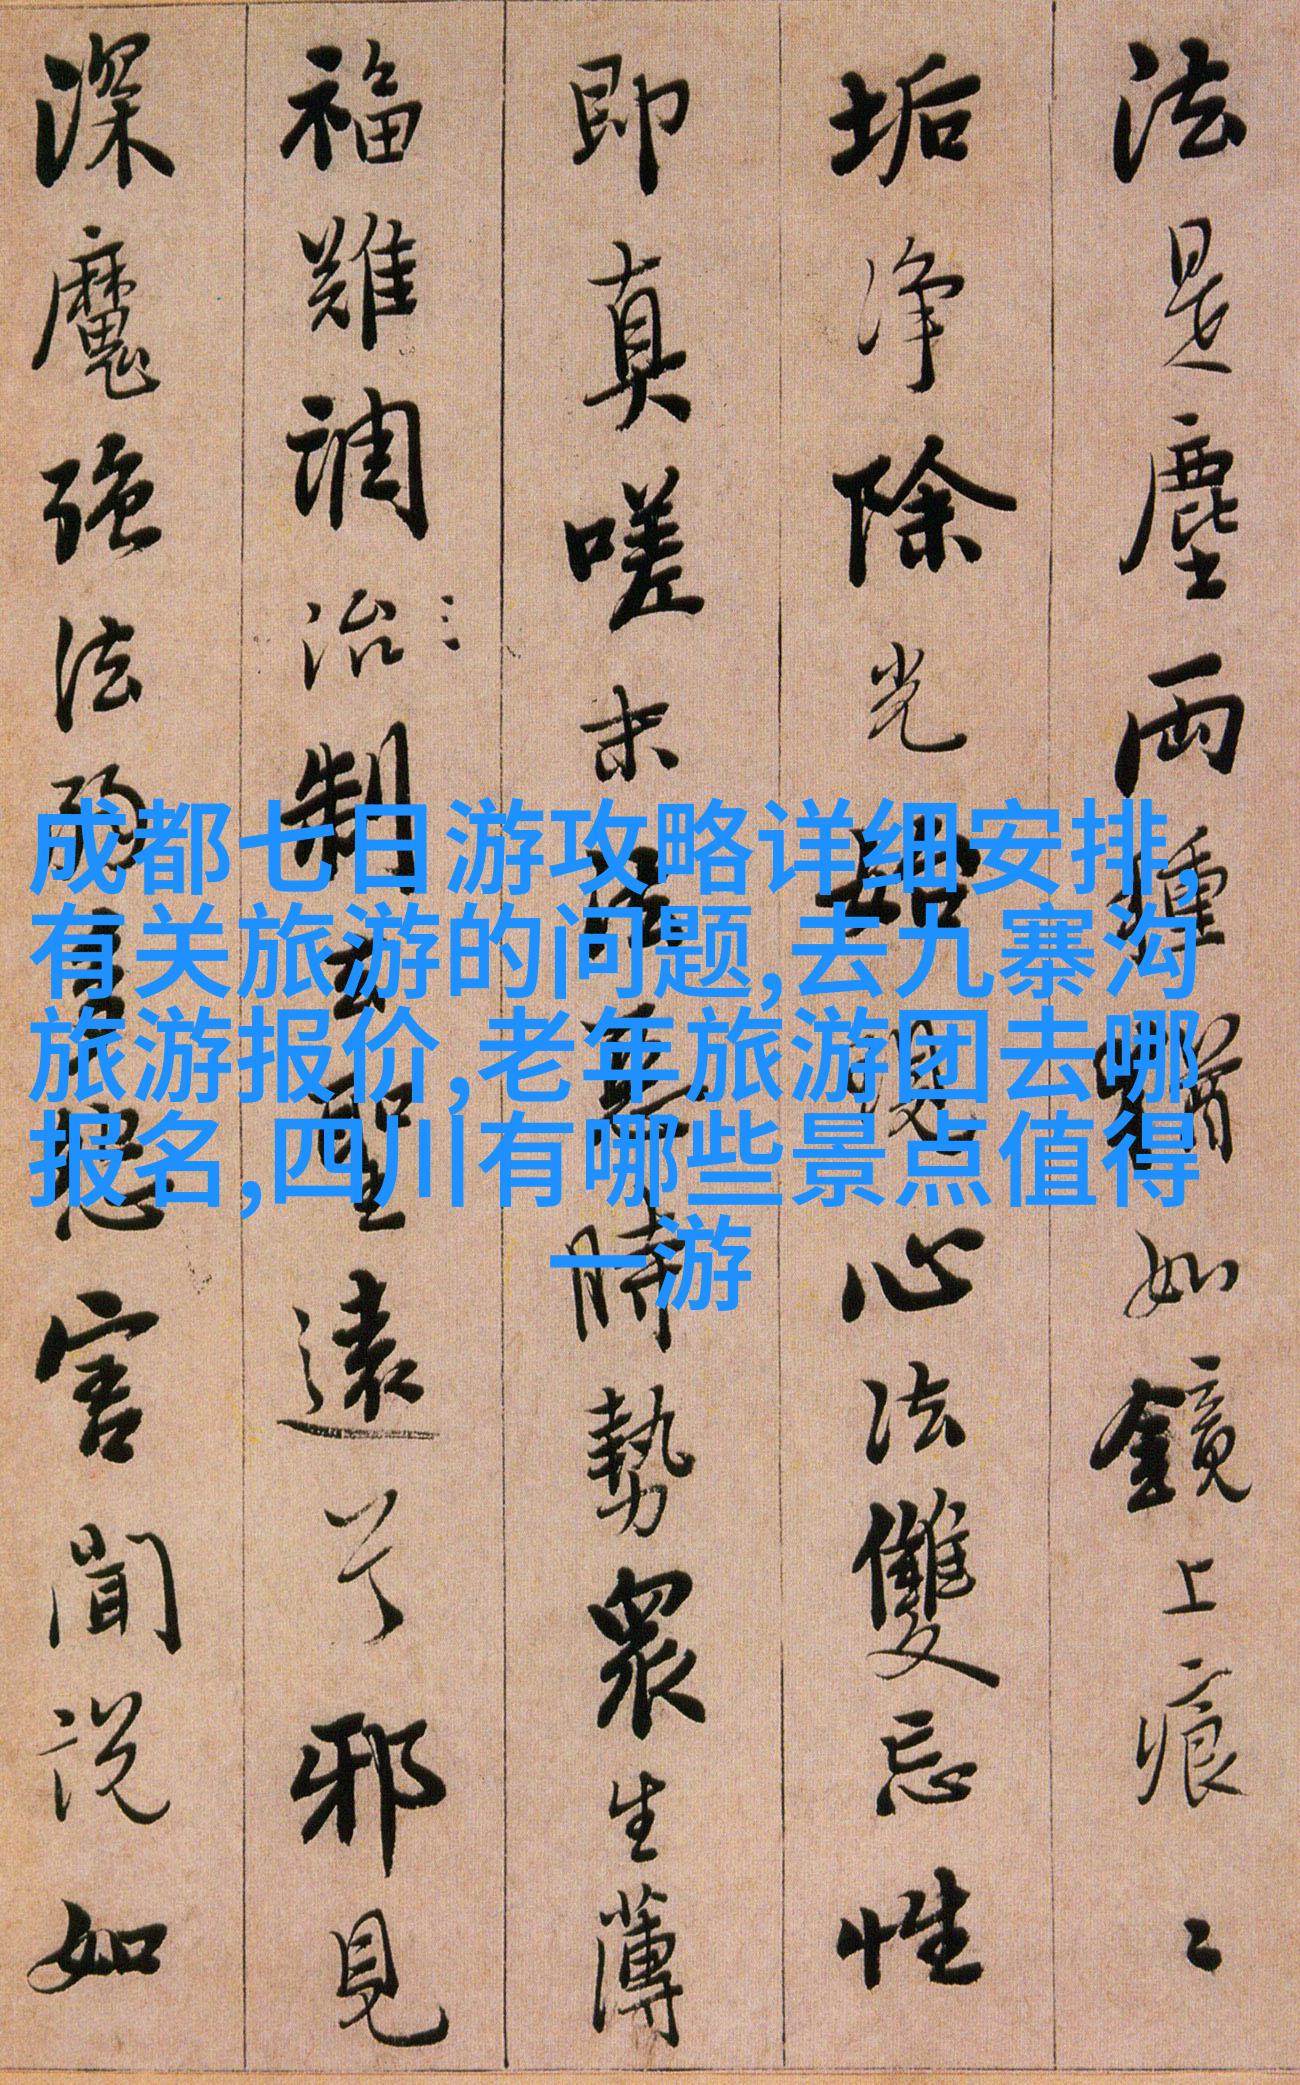 法是塵兩種
如鏡上痕〻
垢淨除光
心法雙忘性
即真嗟末
時勢衆生薄
福難調治
制
遠兮邪見
深魔強法弱
害聞說如
成都七日游攻略详细安排,
有关旅游的问题,去九寨沟
旅游报价,老年旅游团去哪
报名,四川有哪些景点值得
一游